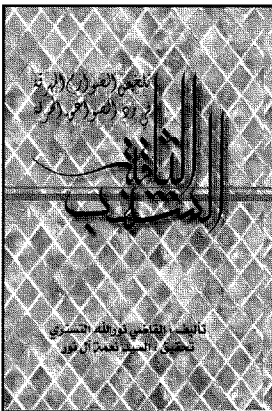 تلخيص الصوارم المهرقة
في رد الصواعق المحرقة
الشهاب الثاقب
تأليف : القاضي نورالله التستري
تحقيق : السيد نعمة آل نور